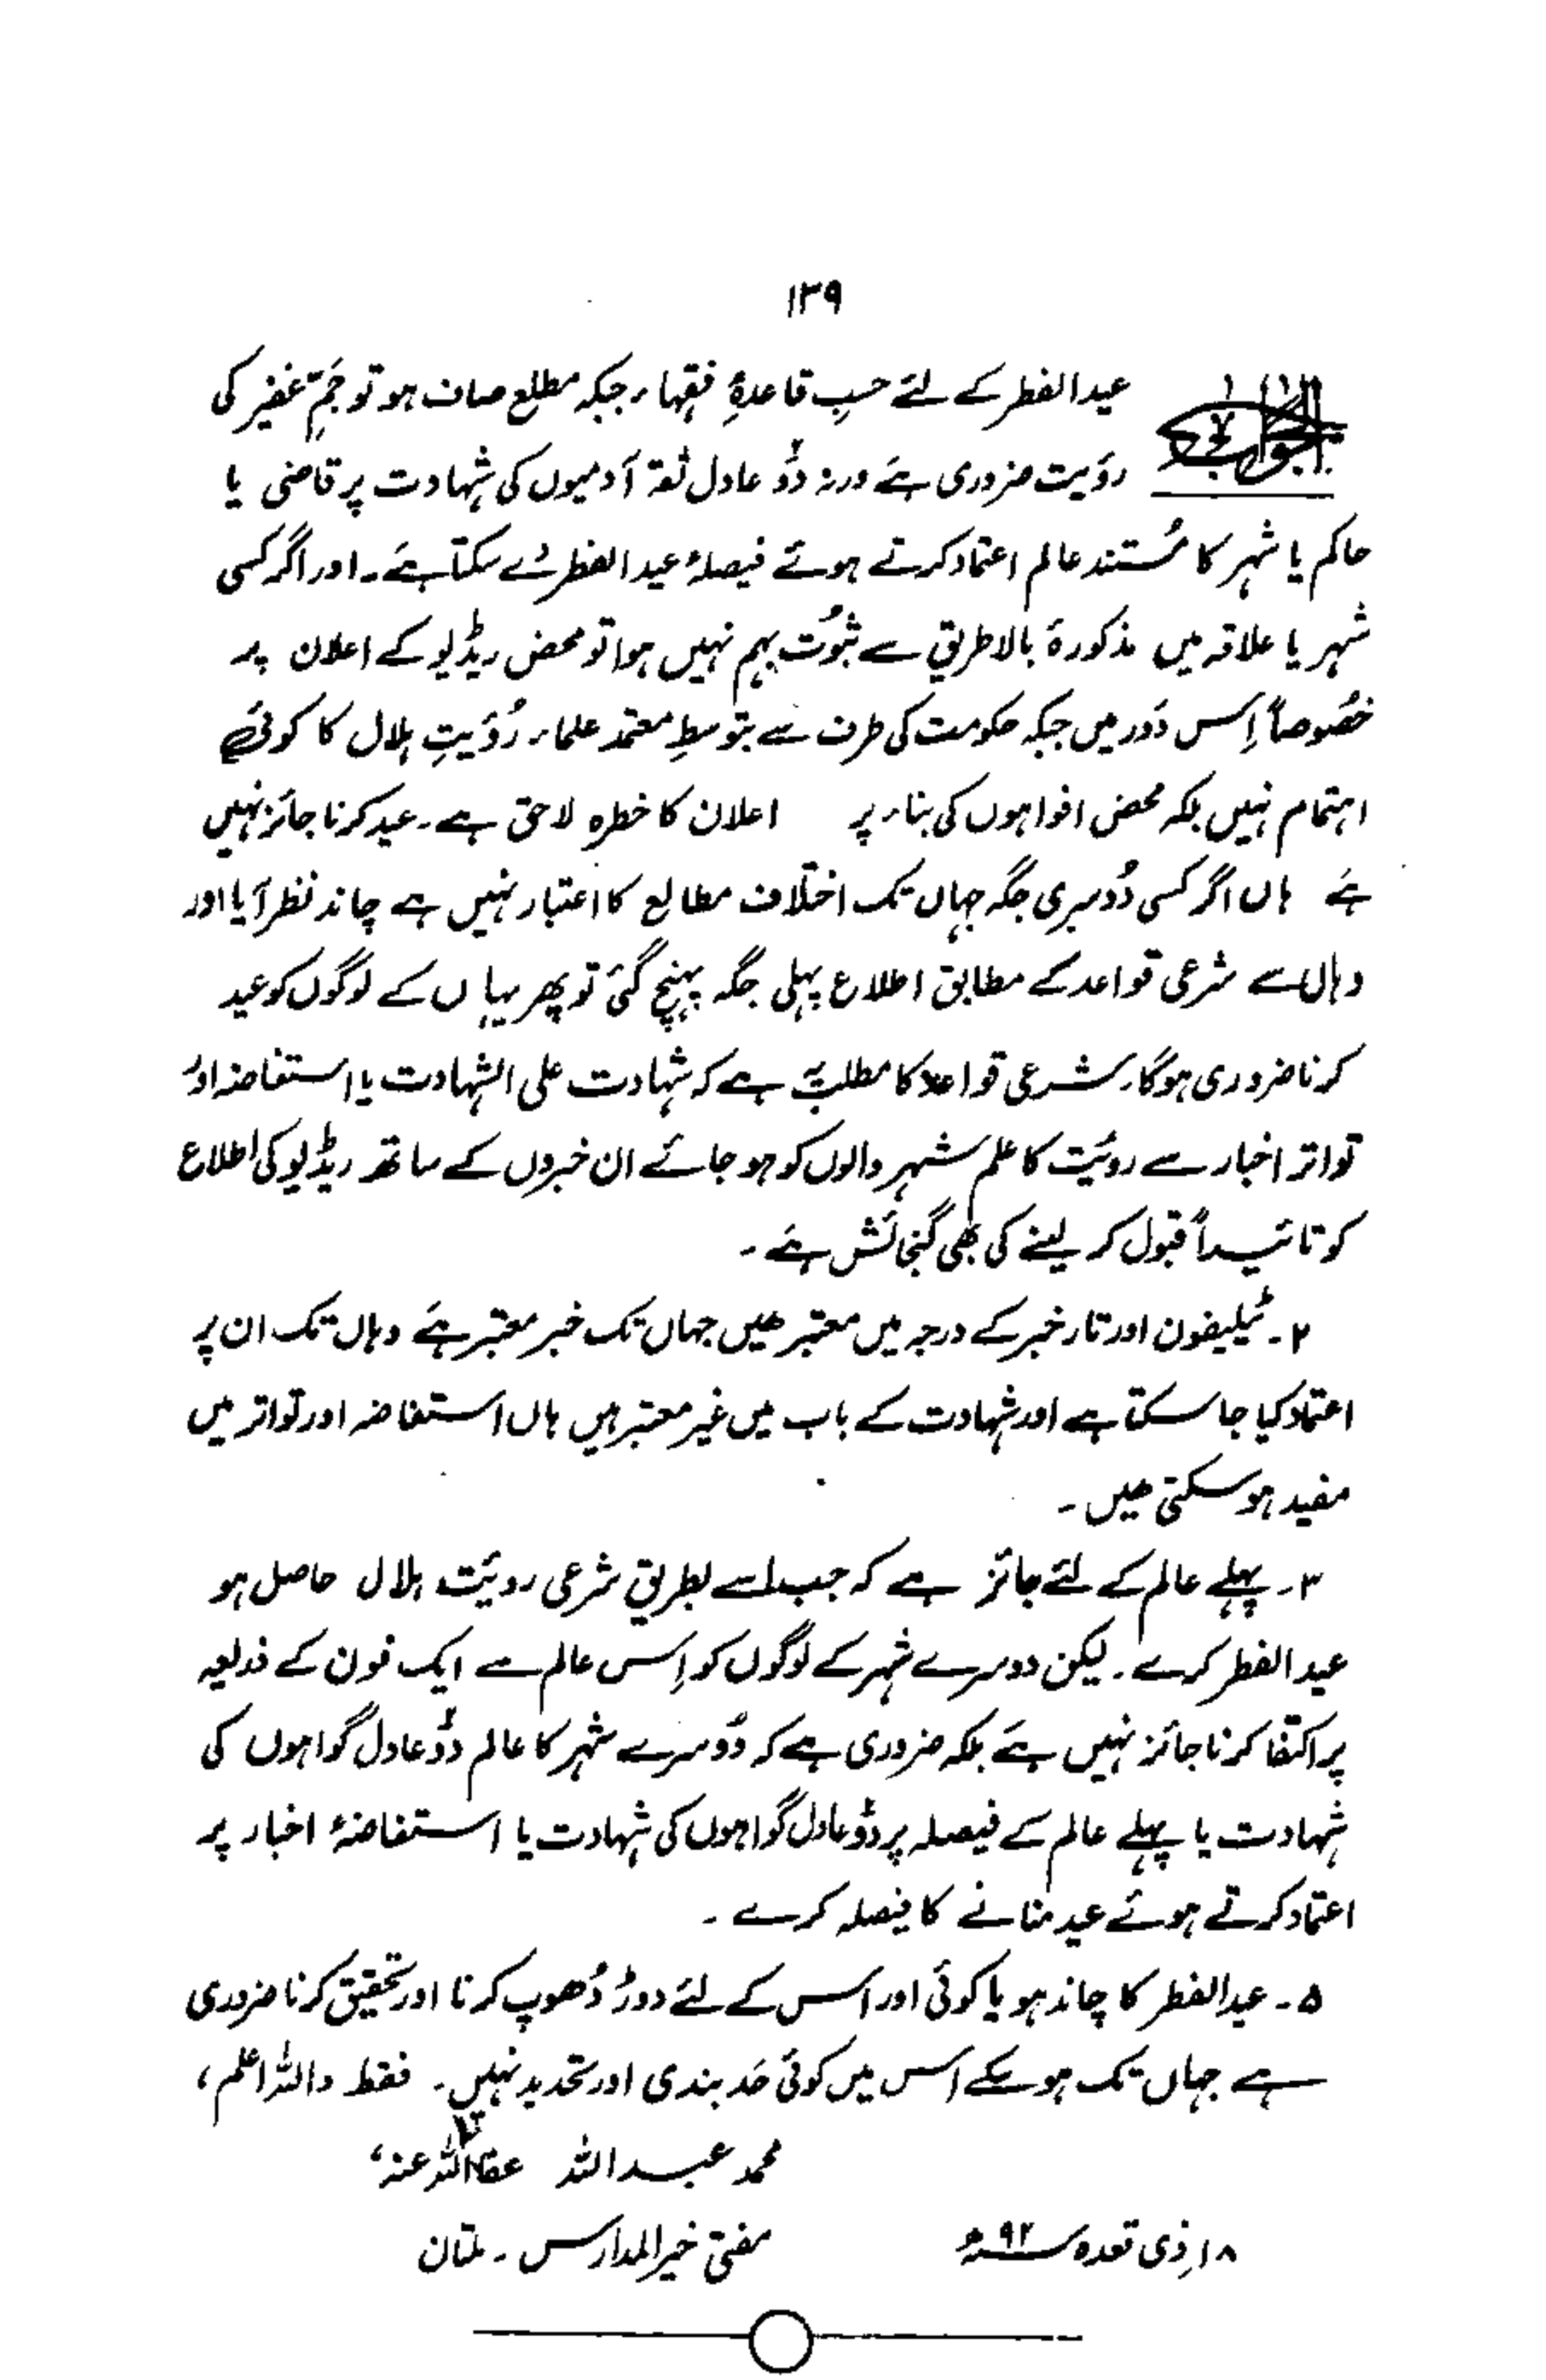 ۱۳۹
الجواب
عیدالفطر کے لئے حسبِ قاعدۂ فقہاء جبکہ مطلع صاف ہو تو جَمِّ غفیر کی
رؤیت ضروری ہے ورنہ دوؑ عادل ثقہ آدمیوں کی شہادت پر قاضی یا
حاکم یا شہر کا مُستند عالم اعتماد کرتے ہوئے فیصلۂ عید الفطر دے سکتا ہے۔ اور اگر کسی
شہر یا علاقہ میں مذکورۂ بالا طریق سے ثبوُت بہم نہیں ہوا تو محض ریڈیو کے اعلان پر
خصُوصاً اِس دَور میں جبکہ حکومت کی طرف سے بتوسطِ معتمد علماء رُؤیتِ ہلال کا کوئی
اہتمام نہیں بلکہ محض افواہوں کی بناء پر اعلان کا خطرہ لاحق ہے۔ عید کرنا جائز نہیں
ہے ہاں اگر کسی دُوسری جگہ جہاں تک اختلاف مطالع کا اعتبار نہیں ہے چاند نظر آیا اور
وہاں سے شرعی قواعد کے مطابق اطلاع پہلی جگہ پہنچ گئی تو پھر یہاں کے لوگوں کو عید
کرنا ضروری ہوگا۔ شرعی قواعد کا مطلب یہ ہے کہ شہادت علی الشہادت یا استفاضہ اور
تواتر اخبار سے روئیت کا علم شہر والوں کو ہو جائے ان خبروں کے ساتھ ریڈیو کی اطلاع
کو تائیداً قبول کر لینے کی بھی گنجائش ہے۔
۲۔ ٹیلیفون اور تار خبر کے درجہ میں معتبر ھیں جہاں تک خبر معتبر ہے وہاں تک ان پر
اعتماد کیا جا سکتا ہے اور شہادت کے باب میں غیر معتبر ہیں ہاں استفاضہ اور تواتر میں
مفید ہو سکتی ھیں۔
۳۔ پہلے عالم کے لئے جائز ہے کہ جب اسے بطریق شرعی روئیت ہلال حاصل ہو
عید الفطر کرے۔ لیکن دوسرے شہر کے لوگوں کو اِس عالم سے ایک فون کے ذریعہ
پر اکتفا کرنا جائز نہیں ہے بلکہ ضروری ہے کہ دُوسرے شہر کا عالم دوؑ عادل گواہوں کی
شہادت یا پہلے عالم کے فیصلہ پر دوؑ عادل گواہوں کی شہادت یا استفاضۂ اخبار پر
اعتماد کرتے ہوئے عید منانے کا فیصلہ کرے۔
۵۔ عید الفطر کا چاند ہو یا کوئی اور اس کے لئے دوڑ دُھوپ کرنا اور تحقیق کرنا ضروری
ہے جہاں تک ہو سکے اس میں کوئی حَد بندی اور تحدید نہیں۔ فقط واللہ اعلم،
محمد عبداللہ عفا اللہ عنہ،
۱۸ ذی قعدہ ۹۲ھ مفتی خیر المدارس۔ ملتان